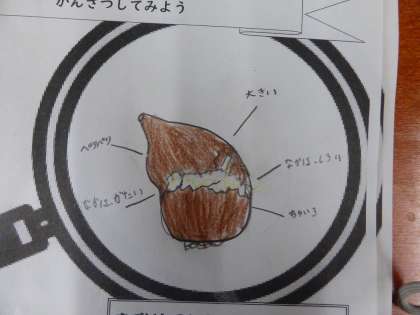 かんさつしてみよう
大きい
ペリペリ
なかは、しろい
なかは、かたい
ちゃいろ